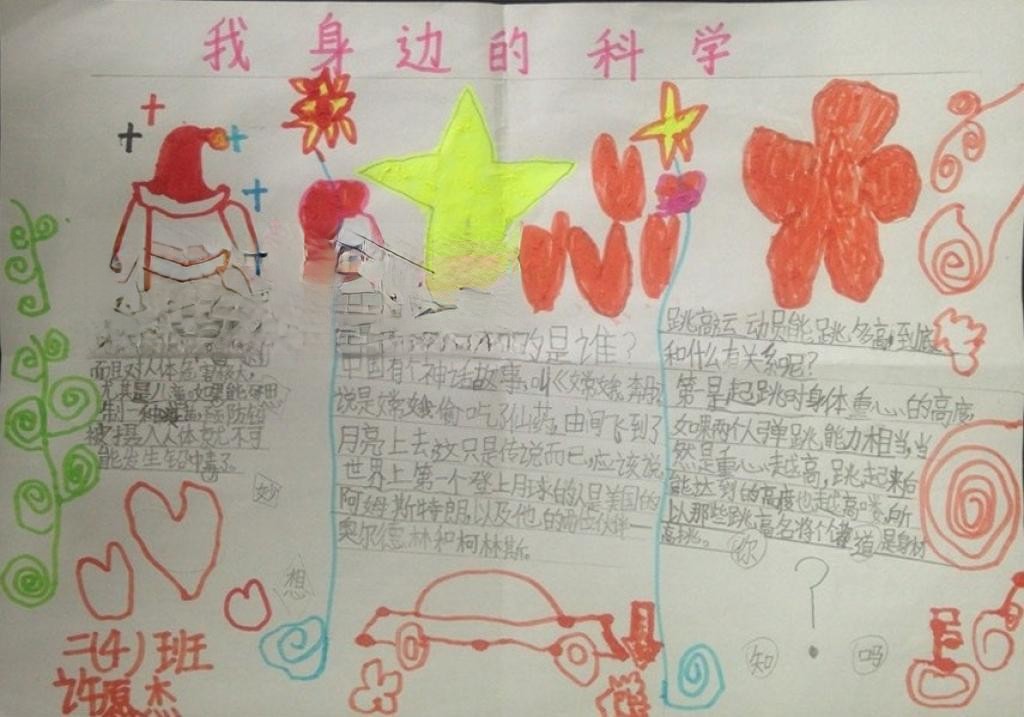 我身边的科学
而且对人体危害较大,
尤其是儿童。如果能研
制一种
被摄入人体就不可
能发生铅中毒了
妙
想
的是谁?
中国有个神话故事,叫《嫦娥奔月》
说是嫦娥偷吃了仙药,由间飞到了
月亮上去,这只是传说而已,应该说
世界上第一个登上月球的人是美国的
阿姆斯特朗,以及他的两位伙伴——
奥尔德林和柯林斯。
跳高运动员能跳多高,到底
和什么有关系呢?
第一是起跳时身体重心的高度
如果两个人弹跳能力相当,当
然是重心越高,跳起来自
能达到的高度也越高喽,所
以那些跳高名将个个都是身材
高挑。
你
知
道
吗
?
二(4)班
许愿杰